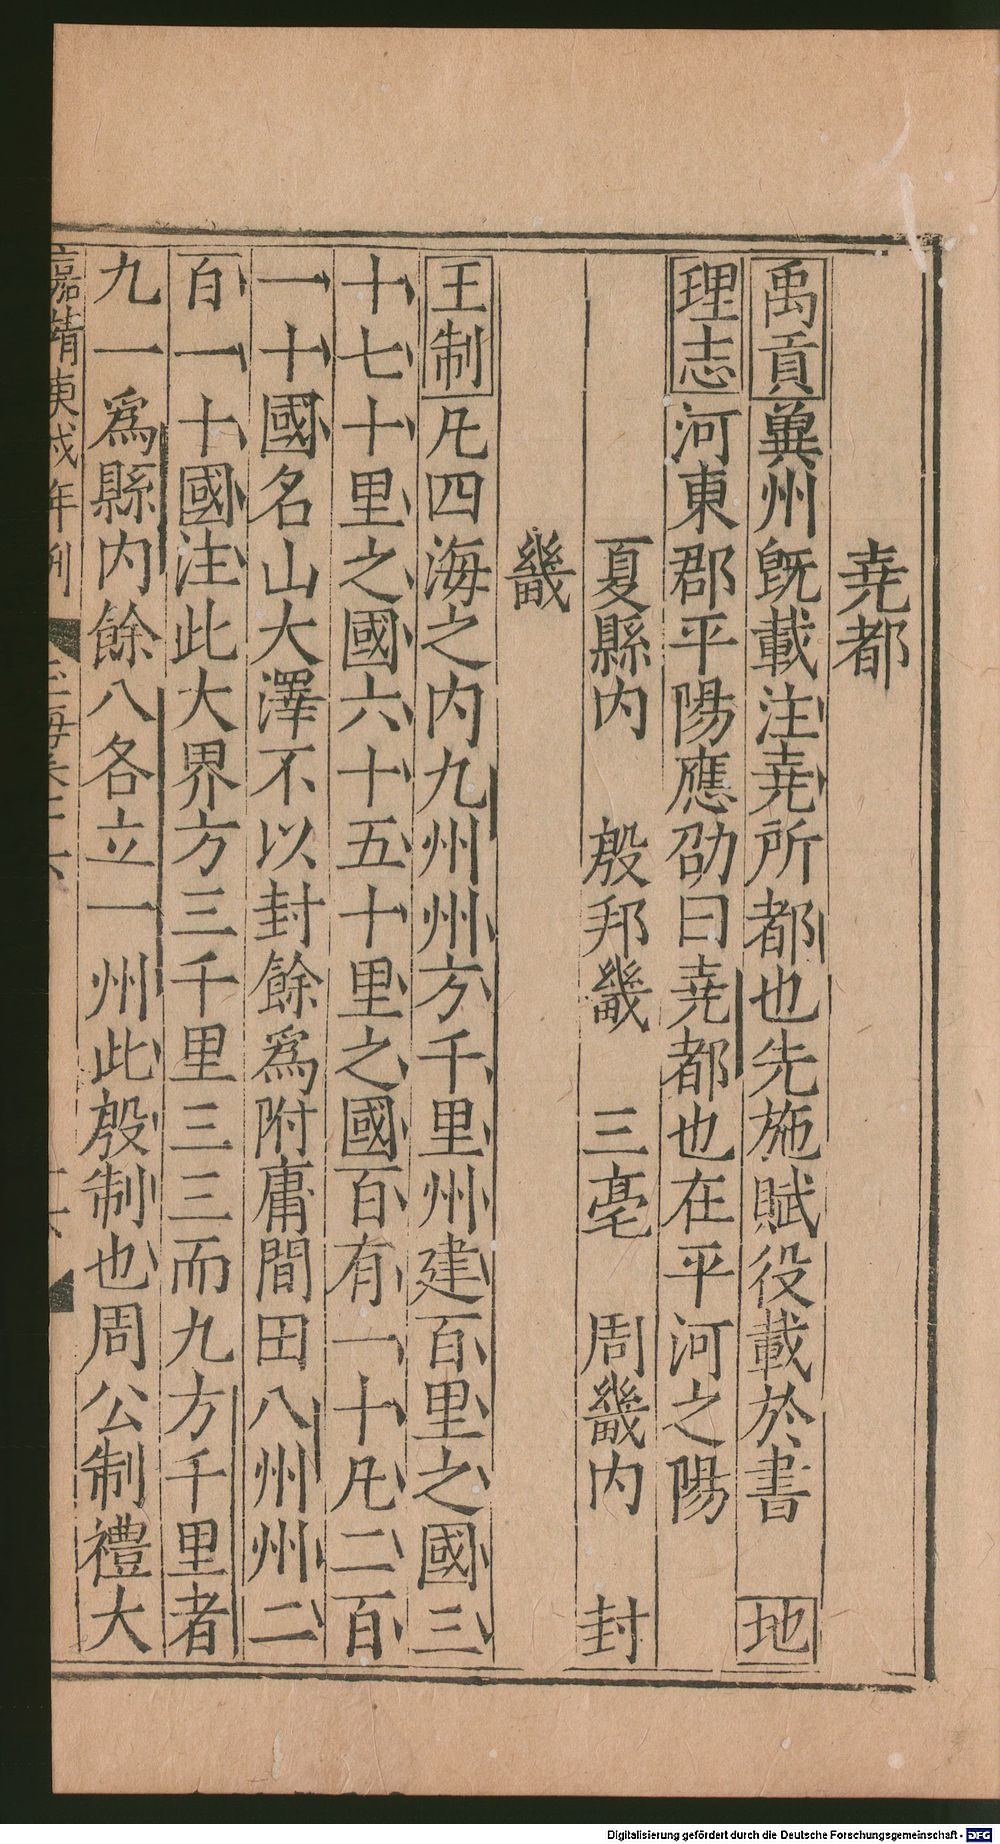 堯都
禹貢冀州旣載注堯所都也先施賦役載於書地
理志河東郡平陽應劭曰堯都也在平河之陽
夏縣内 殷邦畿 三亳 周畿内 封
畿
王制凡四海之内九州州方千里州建百里之國三
十七十里之國六十五十里之國百有一十凡二百
一十國名山大澤不以封餘爲附庸間田八州州二
百一十國注此大界方三千里三三而九方千里者
九一爲縣内餘八各立一州此殷制也周公制禮大
嘉靖庚戌年刊
Digitalisierung gefördert durch die Deutsche Forschungsgemeinschaft - DFG